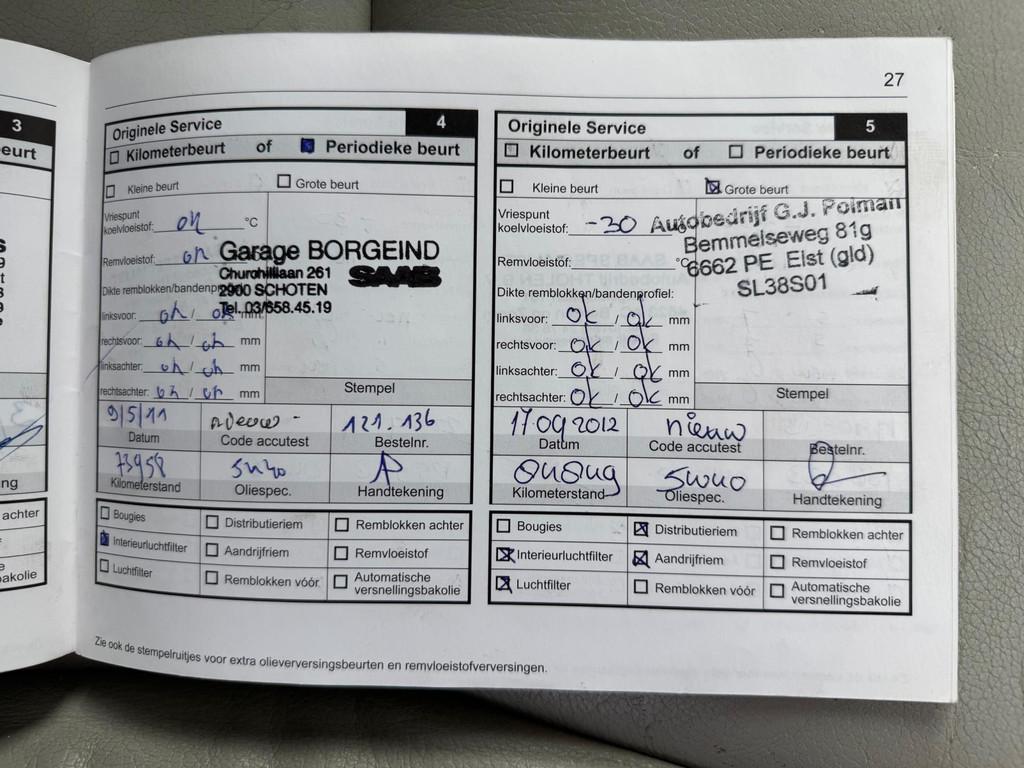 27
3
eurt
ng
achter
akolie
Originele Service 4
Kilometerbeurt of Periodieke beurt
Kleine beurt Grote beurt
Vriespunt
koelvloeistof: ok °C
Remvloeistof: ok
Garage BORGEIND
Churchilllaan 261 SAAB
2900 SCHOTEN
Tel. 03/658.45.19
Dikte remblokken/bandenpr
linksvoor: ok / ok mm
rechtsvoor: ok / ok mm
linksachter: ok / ok mm
rechtsachter: ok / ok mm
Stempel
9/5/11 nieuw - 121.136
Datum Code accutest Bestelnr.
73958 5W40
Kilometerstand Oliespec. Handtekening
Bougies Distributieriem Remblokken achter
Interieurluchtfilter Aandrijfriem Remvloeistof
Luchtfilter Remblokken vóór Automatische
versnellingsbakolie
Originele Service 5
Kilometerbeurt of Periodieke beurt
Kleine beurt Grote beurt
Vriespunt
koelvloeistof: -30
Remvloeistof: °C
Autobedrijf G.J. Polman
Bemmelseweg 81g
6662 PE Elst (gld)
SL38S01
Dikte remblokken/bandenprofiel:
linksvoor: ok / ok mm
rechtsvoor: ok / ok mm
linksachter: ok / ok mm
rechtsachter: ok / ok mm
Stempel
17.09.2012 nieuw
Datum Code accutest Bestelnr.
5W40
Kilometerstand Oliespec. Handtekening
Bougies Distributieriem Remblokken achter
Interieurluchtfilter Aandrijfriem Remvloeistof
Luchtfilter Remblokken vóór Automatische
versnellingsbakolie
Zie ook de stempelruitjes voor extra olieverversingsbeurten en remvloeistofverversingen.